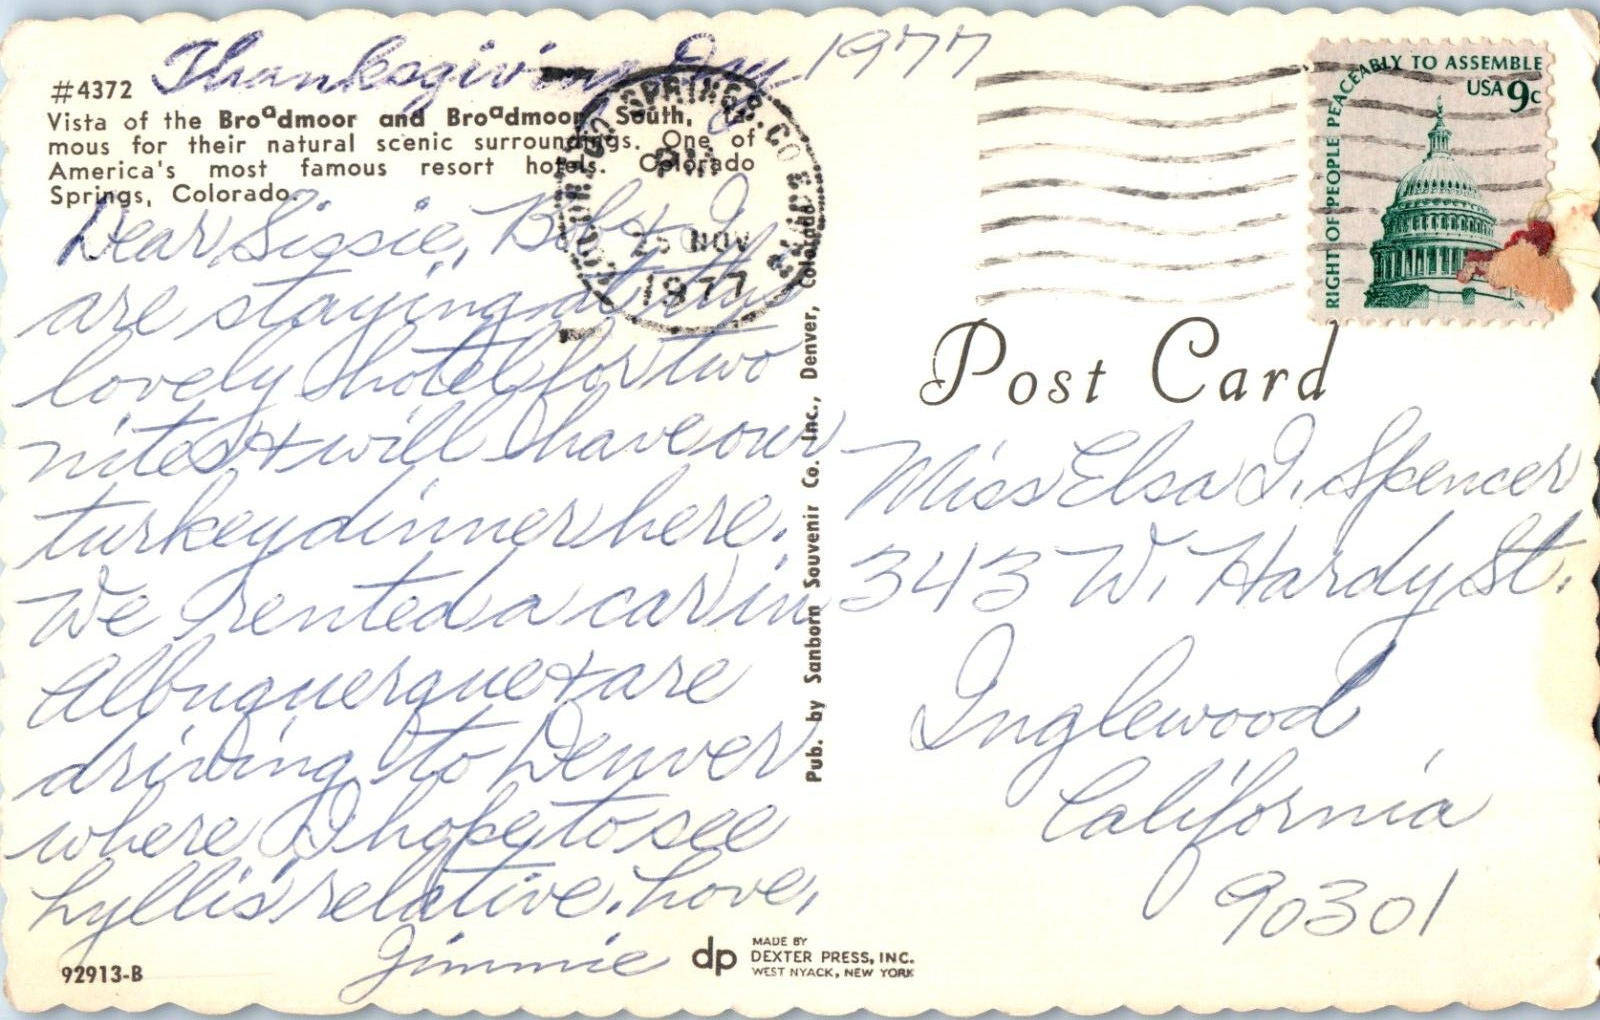 Thanksgiving Day 1977
#4372
Vista of the Broadmoor and Broadmoor South, fa-
mous for their natural scenic surroundings. One of
America's most famous resort hotels. Colorado
Springs, Colorado.
Dear Sissie, Bob & I
are staying at this
lovely hotel for two
nites & will have our
turkey dinner here.
We rented a car in
Albuquerque & are
driving to Denver
where I hope to see
Lyllis' relative. Love,
Jimmie
92913-B
SPRINGS, CO
PM
25 NOV
1977
Pub. by Sanborn Souvenir Co. Inc., Denver, Colorado
RIGHT OF PEOPLE PEACEABLY TO ASSEMBLE
USA 9c
Post Card
Miss Elsa I. Spencer
343 W. Hardy St.
Inglewood,
California
90301
dp
MADE BY
DEXTER PRESS, INC.
WEST NYACK, NEW YORK